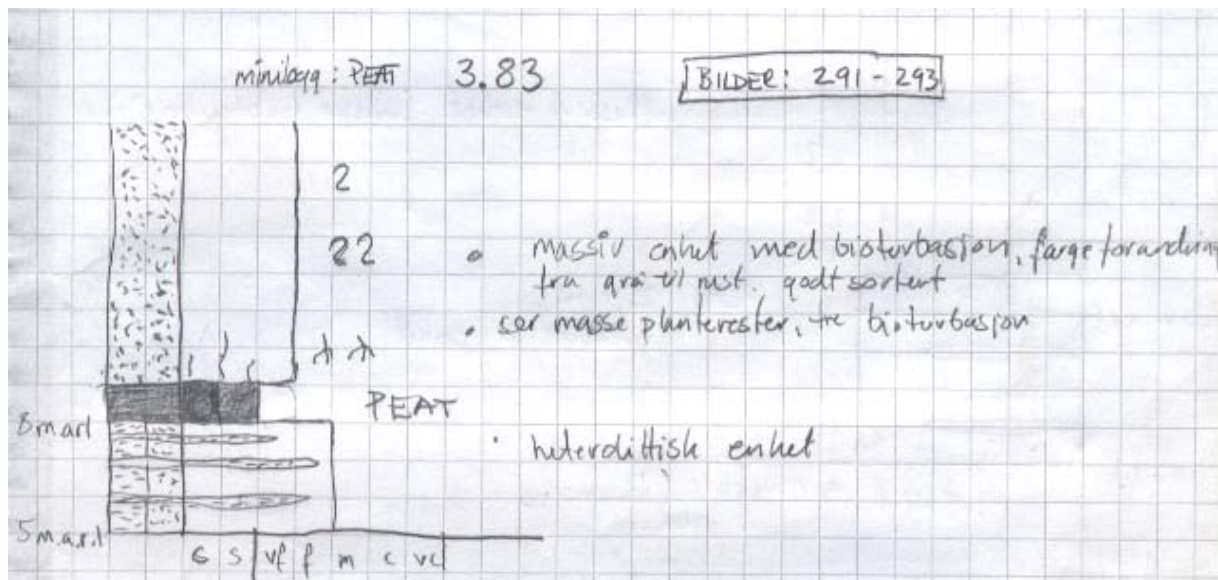 minilogg: PEAT 3.83
BILDER: 291 - 293
2
22
• massiv enhet med bioturbasjon, farge forandring
fra grå til rust. godt sortert
• ser masse planterester, tre bioturbasjon
PEAT
8 m arl
• heterolittisk enhet
5 m.a.r.l
s vf f m c vc